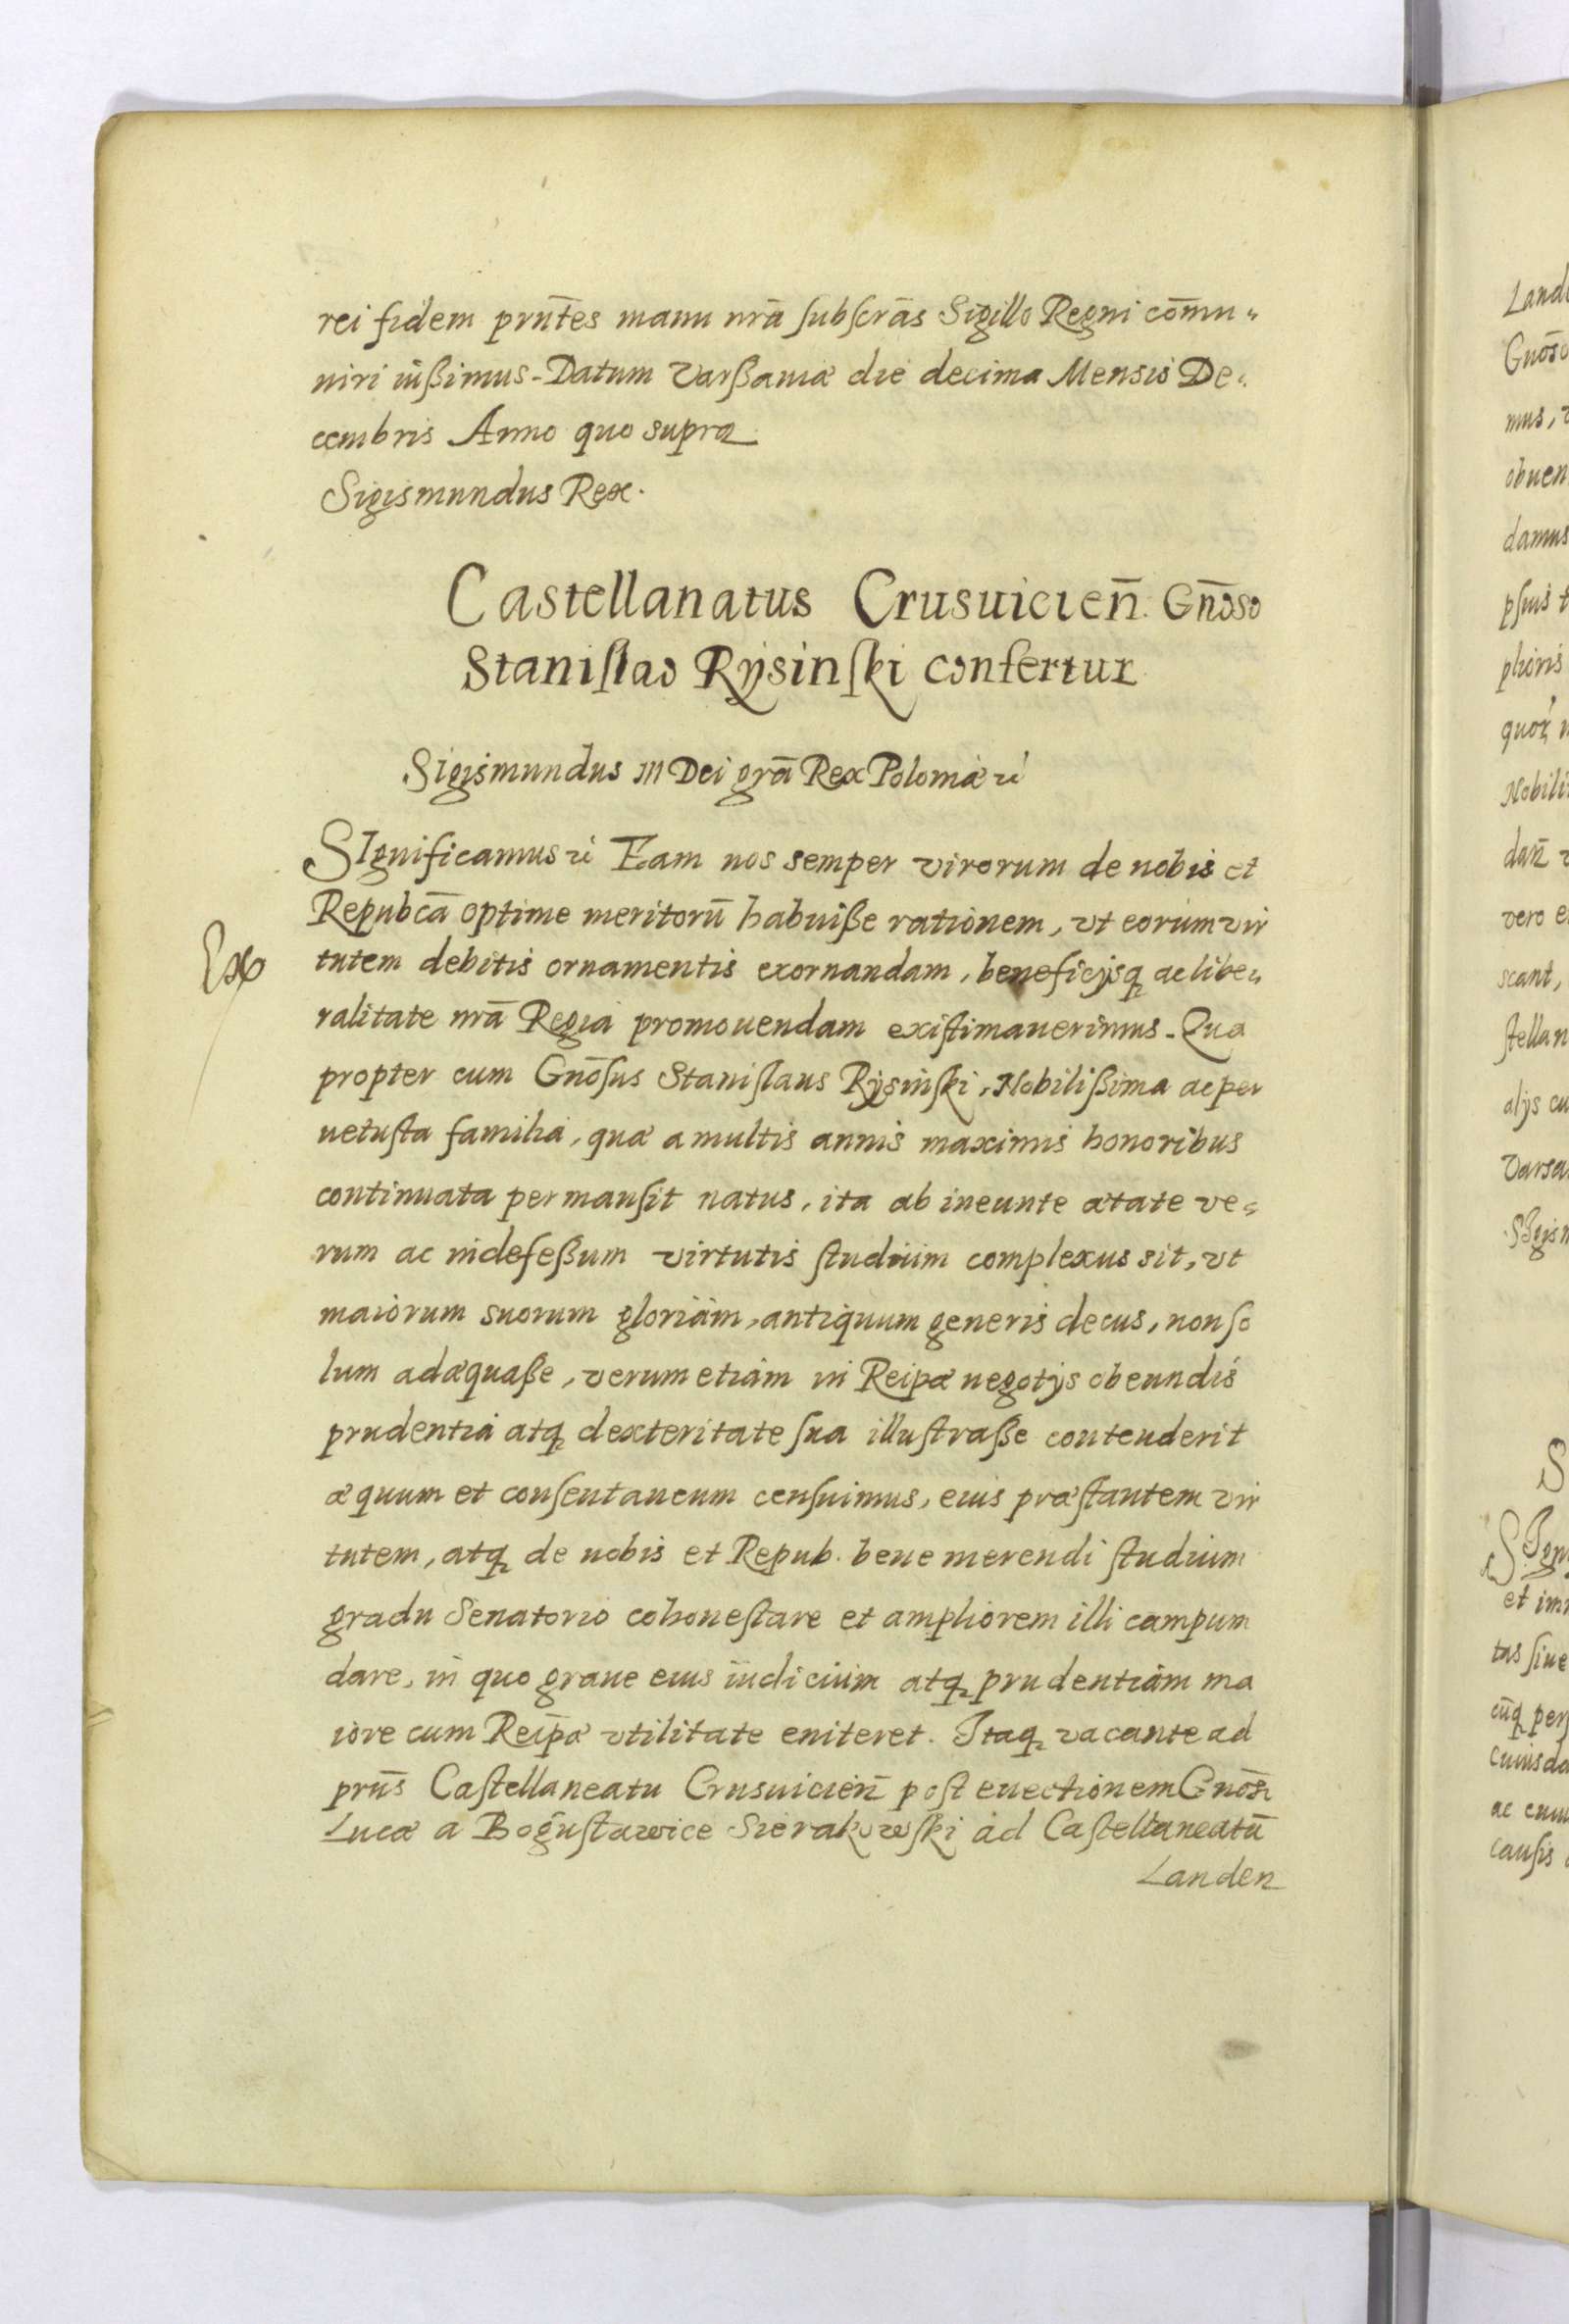 rei fidem prn̄tes manu nr̄a subscr̄as Sigillo Regni com̄u„
niri iußimus. Datum Varßauiæ die decima Mensis De„
cembris Anno quo supra
Sigismundus Rex.
Castellanatus Crusuicien̄. Gn̄oso
Stanislao Rÿsinski confertur
Sigismundus III Dei gr̄a Rex Poloniæ ꝛc̄
SIgnificamus ꝛc̄ Eam nos semper virorum de nobis et
Repubcā optime meritorū habuiße rationem, vt eorum vir
Exo
tutem debitis ornamentis exornandam, beneficÿsq ac libe„
ralitate nr̄a Regia promouendam existimauerimus. Qua
propter cum Gnōsus Stanislaus Rÿsinski, Nobilißima ac per
uetusta familia, quæ a multis annis maximis honoribus
continuata permansit natus, ita ab ineunte ætate ve„
rum ac indefeßum virtutis studium complexus sit, vt
maiorum suorum gloriam, antiquum generis decus, non so
lum adæquaße, verum etiam in Reipæ negotÿs obeundis
prudentia atq dexteritate sua illustraße contenderit
æquum et consentaneum censuimus, eius præstantem vir
tutem, atq de nobis et Repub. bene merendi studium
gradu Senatorio cohonestare et ampliorem illi campum
dare, in quo graue eius iudicium atq prudentiam ma
iore cum Reip̄æ vtilitate eniteret. Itaq vacante ad
prn̄s Castellaneatu Crusuicien̄ post euectionem Gnōsi
Lucæ a Bogusławice Sierakowski ad Castellaneatū
Landen
Land
Gnōso
mus,
obuen
damus
psius
plioris
quor
Nobili
dan̄
vero
scant,
stellan
alÿs cu
Varsa
SIgism
S
SIgn
et im
tas siue
cūq per
cuiusda
ac
causis